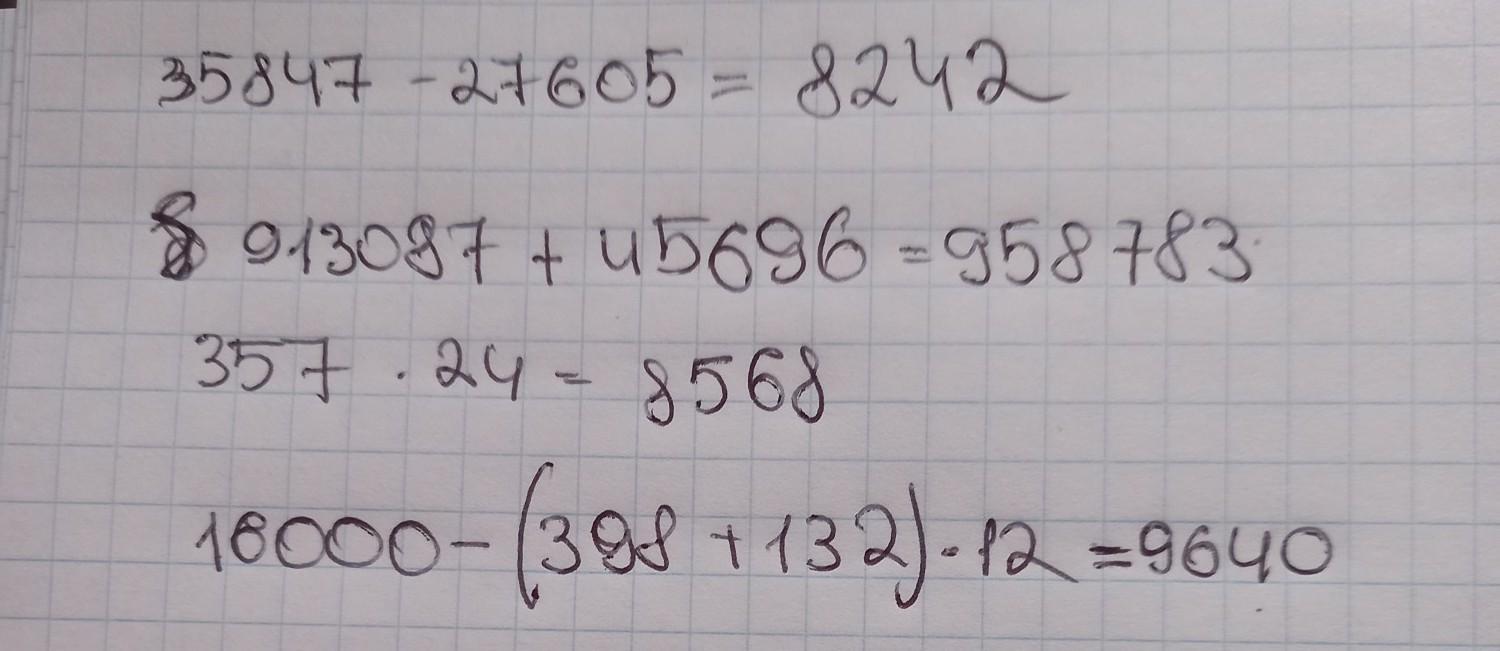 35847 - 27605 = 8242
913087 + 45696 = 958783
357 · 24 = 8568
16000 - (398 + 132) · 12 = 9640